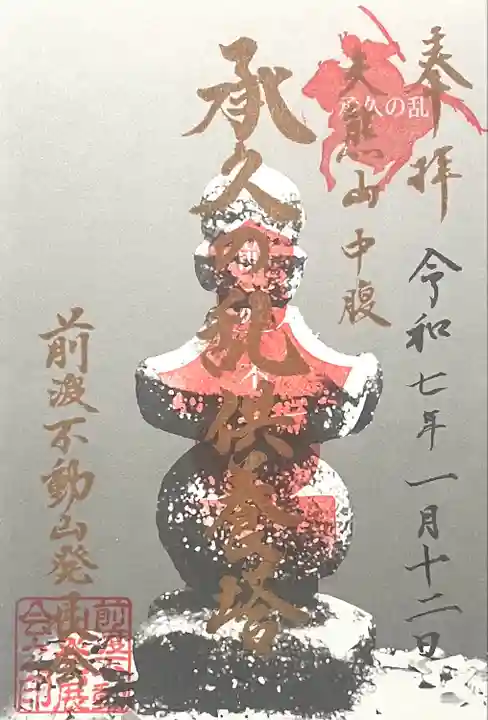 奉拝
承久の乱
大熊山中腹
令和七年一月十二日
承久の乱供養塔
前波不動山発展会